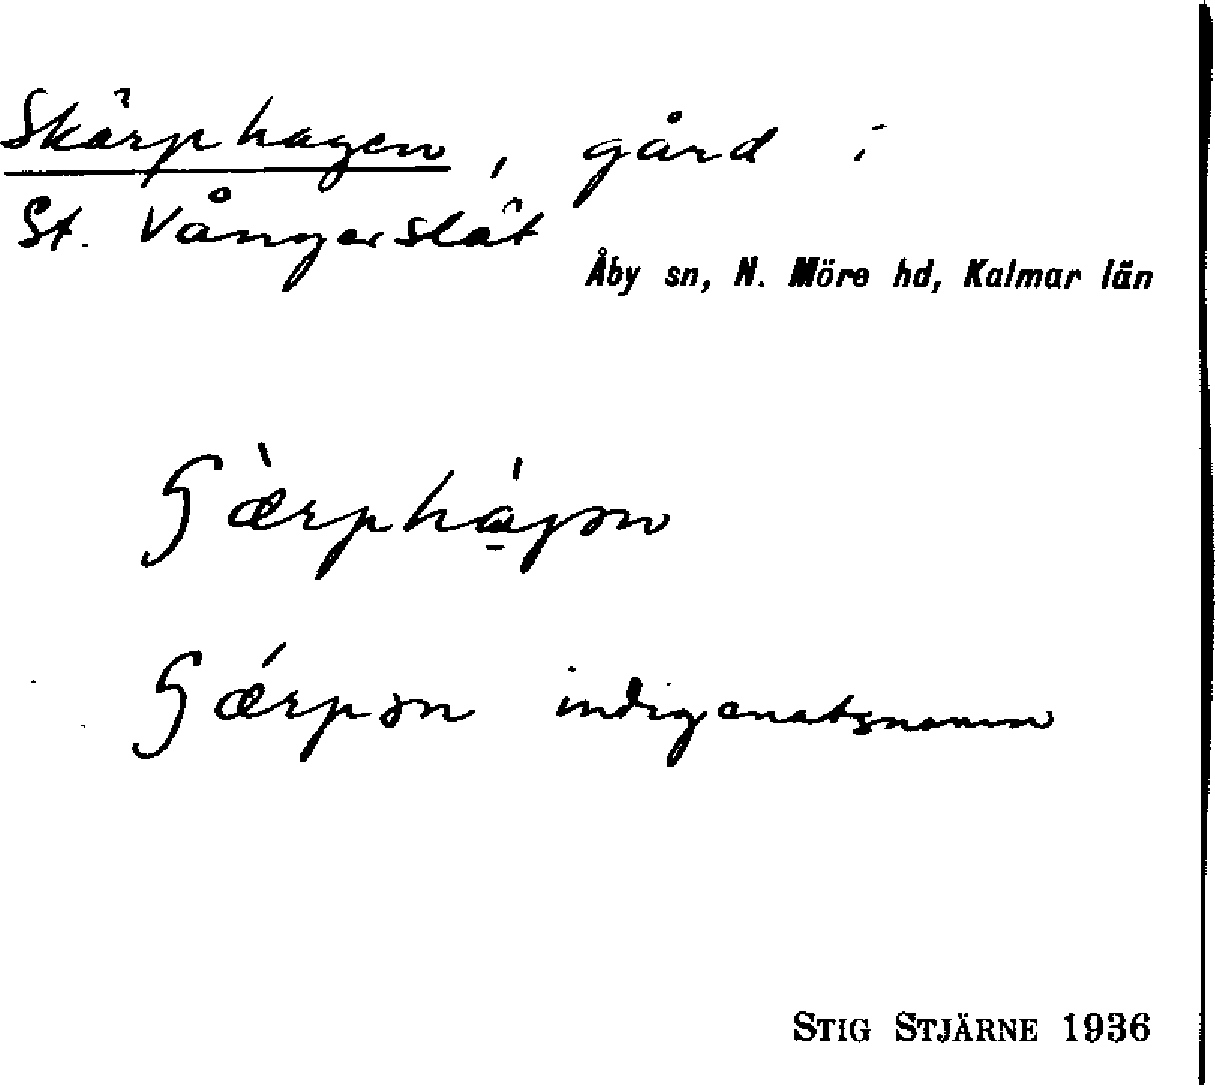 Skärphagen, gård i
St. Vångerslät
Åby sn, N. Möre hd, Kalmar län
ʃæ̀rphá̱gən
ʃǽrpən indigenatsnamn
STIG STJÄRNE 1936